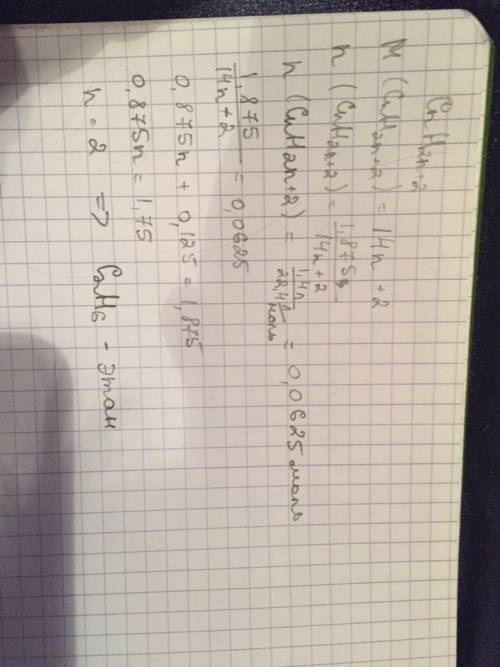 CnH2n+2
M (CnH2n+2) = 14n + 2
n (CnH2n+2) = 1,875г / 14n+2
n (CnH2n+2) = 1,4л / 22,4 л/моль = 0,0625 моль
1,875 / 14n+2 = 0,0625
0,875n + 0,125 = 1,875
0,875n = 1,75
n = 2 => C2H6 - этан